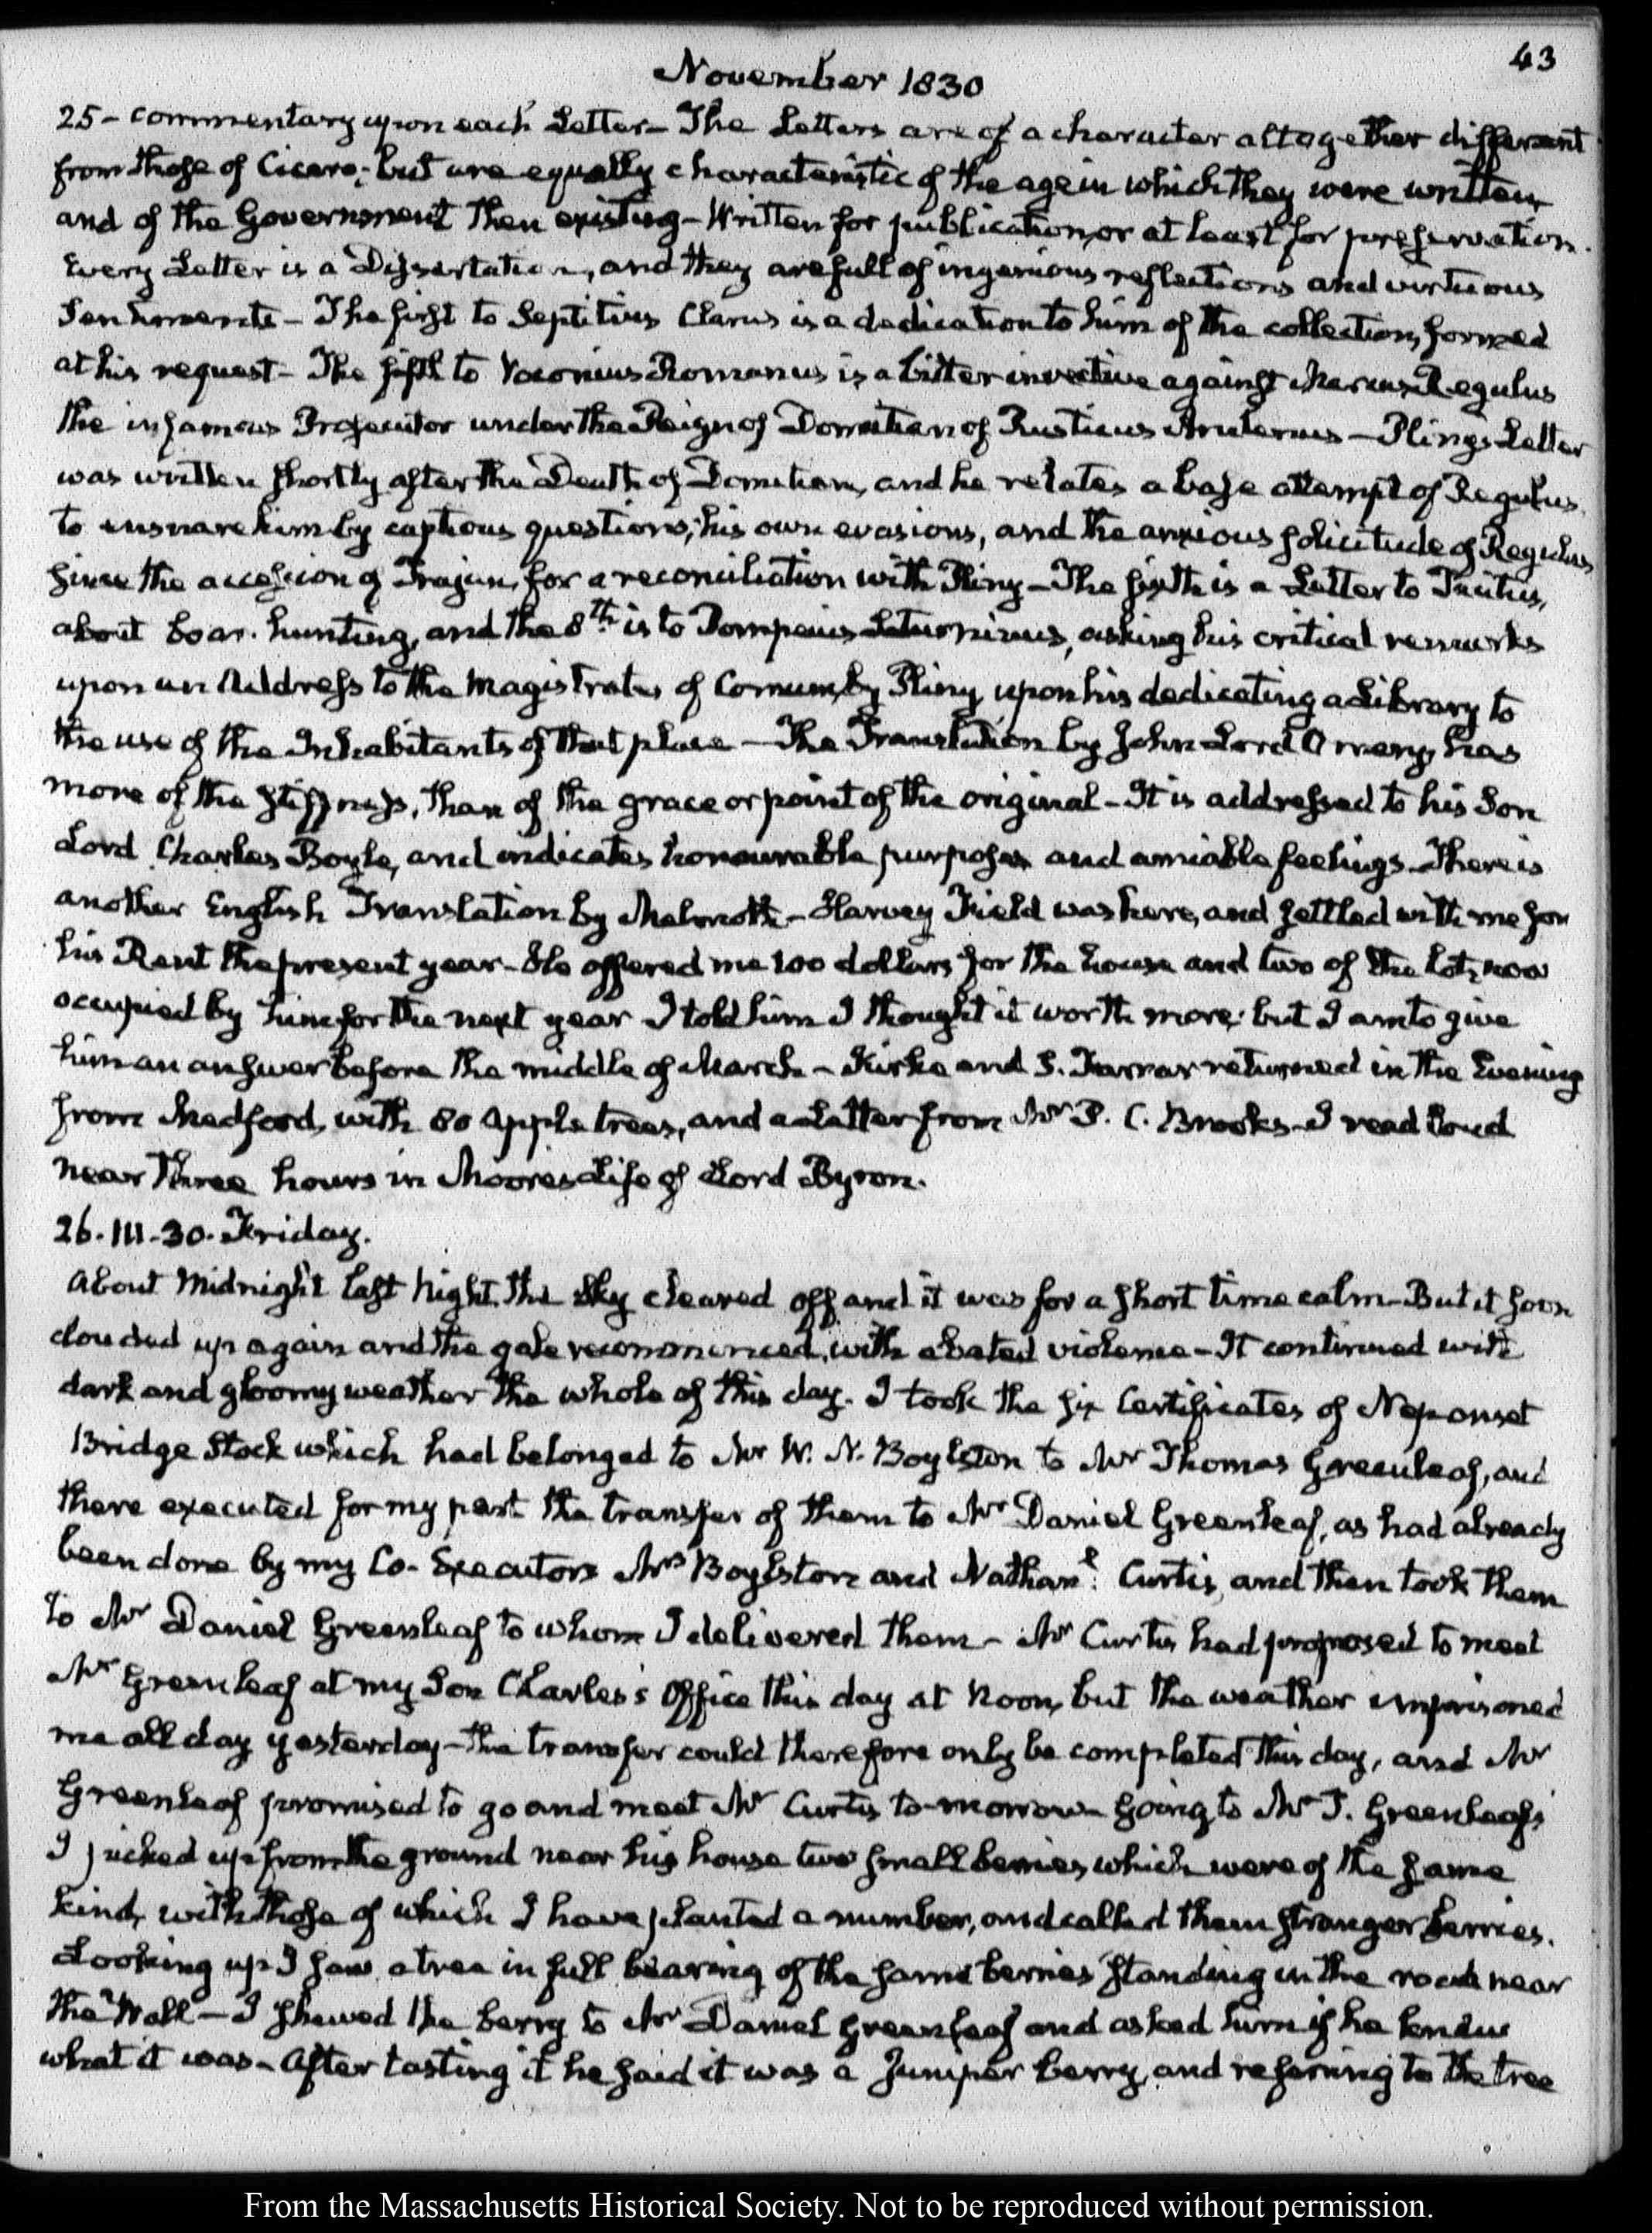 43
November 1830
25 - commentary upon each Letter - The Letters are of a character altogether different
from those of Cicero; but are equally characteristic of the age in which they were written,
and of the Government then existing - Written for publication, or at least for preservation.
Every Letter is a Dissertation, and they are full of ingenious reflections and virtuous
Sentiments - The first to Septitius Clarus is a dedication to him of the collection, formed
at his request - The fifth to Voconius Romanus is a bitter invective against Marcus Regulus
the infamous Prosecutor under the Reign of Domitian of Rusticus Arulenus - Pliny's Letter
was written shortly after the Death of Domitian, and he relates a base attempt of Regulus,
to ensnare him by captious questions; his own evasions, and the anxious solicitude of Regulus,
since the accession of Trajan, for a reconciliation with Pliny - The sixth is a Letter to Tacitus,
about boar-hunting, and the 8th is to Pompeius Saturninus, asking his critical remarks
upon an Address to the Magistrates of Comum, by Pliny, upon his dedicating a Library to
the use of the Inhabitants of that place - The Translation by John Lord Orrery, has
more of the stiffness, than of the grace or point of the original - It is addressed to his Son
Lord Charles Boyle, and indicates honourable purposes and amiable feelings. There is
another English Translation by Melmoth - Harvey Field was here, and settled with me for
his Rent the present year - He offered me 100 dollars for the house and two of the lots now
occupied by him for the next year I told him I thought it worth more; but I am to give
him an answer before the middle of March - Kirke and S. Farrar returned in the Evening
from Medford, with 80 Apple trees, and a Letter from Mr P. C. Brooks - I read loud
near three hours in Moore's Life of Lord Byron.
26. III - 30. Friday.
About Midnight last Night, the sky cleared off and it was for a short time calm - But it soon
clouded up again and the gale recommenced, with abated violence - It continued with
dark and gloomy weather the whole of this day. I took the six Certificates of Neponset
Bridge Stock which had belonged to Mr W. N. Boylston to Mr Thomas Greenleaf, and
there executed for my part the transfer of them to Mr Daniel Greenleaf, as had already
been done by my Co-Executors Mrs Boylston and Nathanl. Curtis, and then took them
to Mr Daniel Greenleaf to whom I delivered them - Mr Curtis had proposed to meet
Mr Greenleaf at my Son Charles's Office this day at Noon, but the weather imprisoned
me all day yesterday - the transfer could therefore only be completed this day, and Mr
Greenleaf promised to go and meet Mr Curtis to-morrow - Going to Mr T. Greenleaf's
I picked up from the ground near his house two small berries, which were of the same
kind, with those of which I have planted a number, and called them stranger berries.
Looking up I saw a tree in full bearing of the same berries standing in the road near
the Wall - I shewed the berry to Mr Daniel Greenleaf and asked him if he knew
what it was - After tasting it he said it was a Juniper berry, and referring to the tree
From the Massachusetts Historical Society. Not to be reproduced without permission.